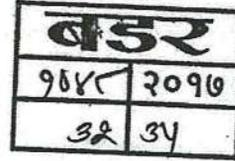 बडर
१०४८ २०१७
३२ ३५